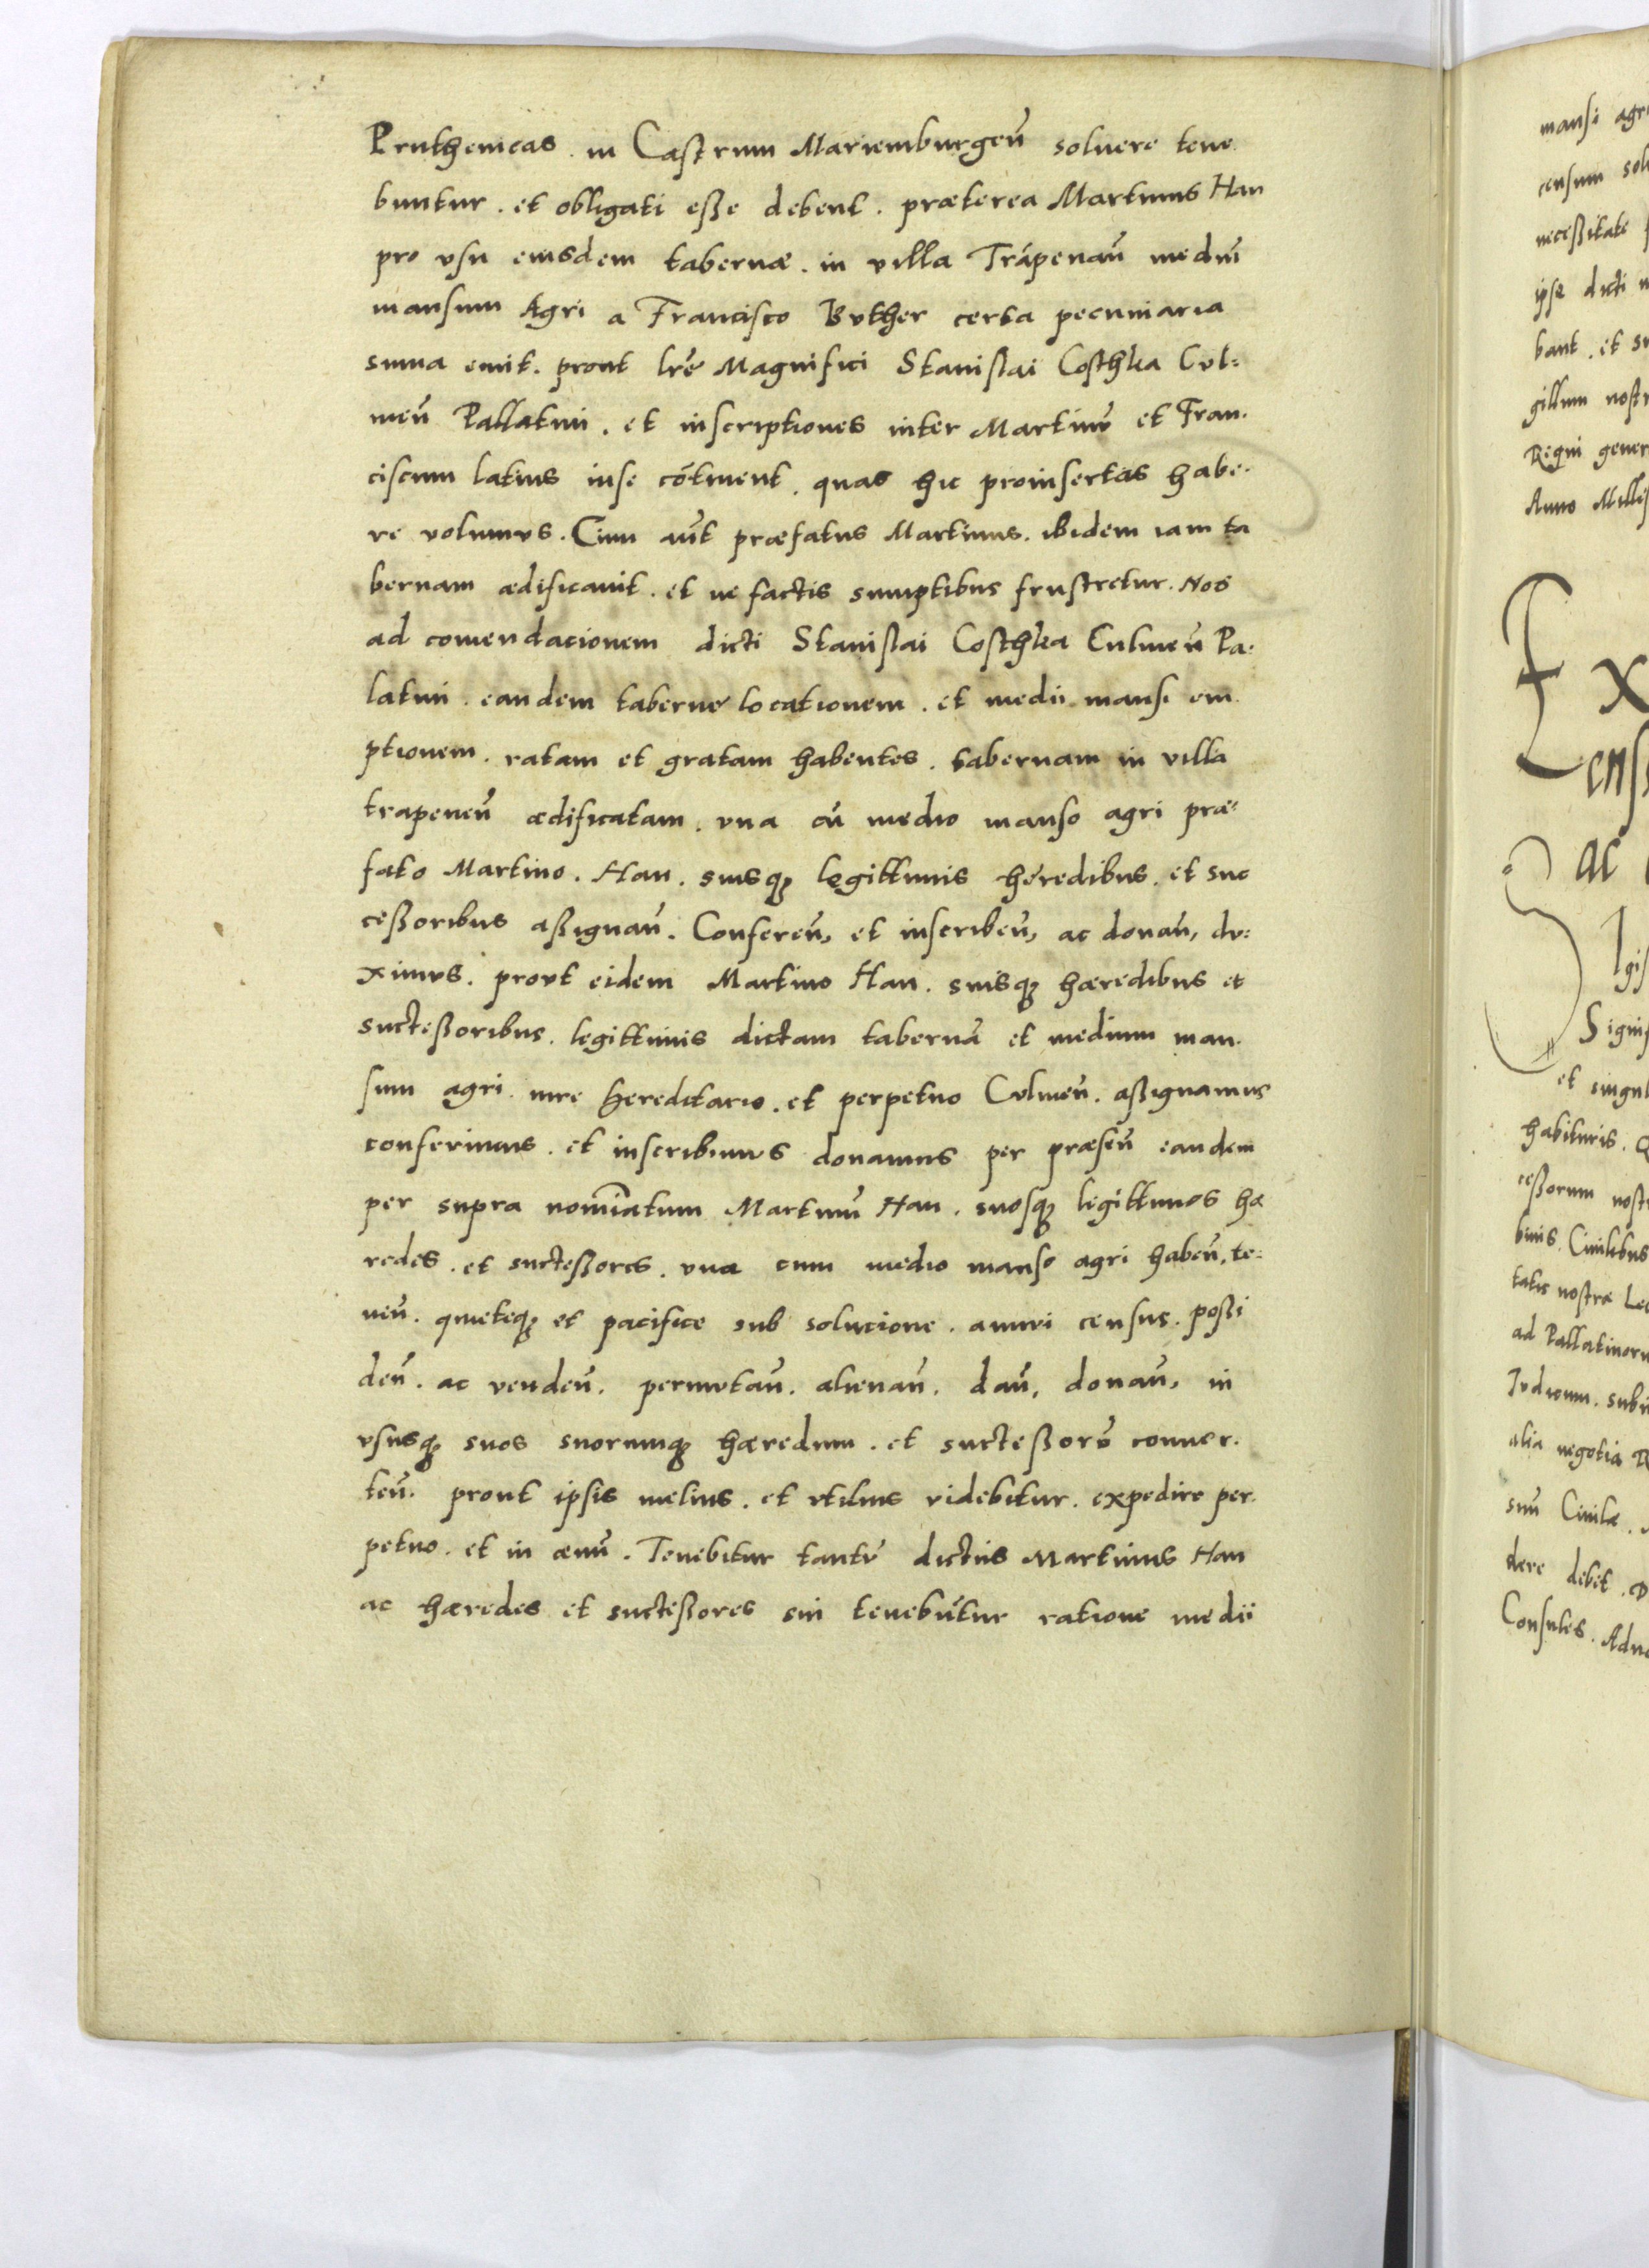 Pruthenicas . in Castrum Mariemburgen̄ soluere tene
buntur . et obligati eße debent . præterea Martinus Han
pro vsu eiusdem tabernæ . in villa Trápenaū mediū
mansum Agri a Francisco Buther certa pecuniaria
suma emit . prout lr̄e Magnifici Stanislai Costhka Cul=
men̄ Pallatini . et inscriptiones inter Martinū et Fran.
ciscum latius inse cōtinent . quas hic proinsertas habe.
re volumus . Cum aūt præfatus Martinus . ibidem iam ta
bernam ædificauit . et ne factis sumptibus frustretur . Nos
ad comendacionem dicti Stanislai Costhka Culmen̄ Pa.
latini . eandem taberne locationem . et medii mansi em
ptionem . ratam et gratam habentes . tabernam in villa
trapenen̄ ædificatam . vna cū medio manso agri præ=
fato Martino . Han . suisq; legittimis heredibus . et suc
ceßoribus aßignan̄ . Conferen̄, et inscriben̄, ac donan̄, du=
ximus . prout eidem Martino Han . suisq; hæredibus et
succeßoribus . legittimis dictam tabernā et medium man.
sum agri . iure hereditario . et perpetuo Culmen̄ . aßignamus
conferimus . et inscribimus donamus per præsen̄ eandem
per supra nomīatum Martinū Han . suosq; legittimos hæ
redes . et succeßores . vna cum medio manso agri haben̄, te=
nen̄ . quieteq; et pacifice sub solucione . annui census . poßi
den̄ . ac venden̄ . permutan̄ . alienan̄ . dan̄, donan̄, in
vsusq; suos suorumq; hæredum . et succeßorū conuer.
ten̄ . prout ipsis melius . et vtilius videbitur . expedire per.
petuo . et in æuū . Tenebitur tantū dictus Martinus Han
ac hæredes et succeßores sui tenebūtur ratione medii
mansi agri
censum sol
neceßitate
ipse dicti
bant . et
gillum nostr
Regni gener
Anno Milles
Ex
cens
ac
Signif
et singul
habituris .
ceßorum nostr
binis . Ciuilibus
tatis nostræ
ad Pallatinoru
Iudicium . subi
alia negotia
suū Ciuile .
dere debet .
Consules . Adu